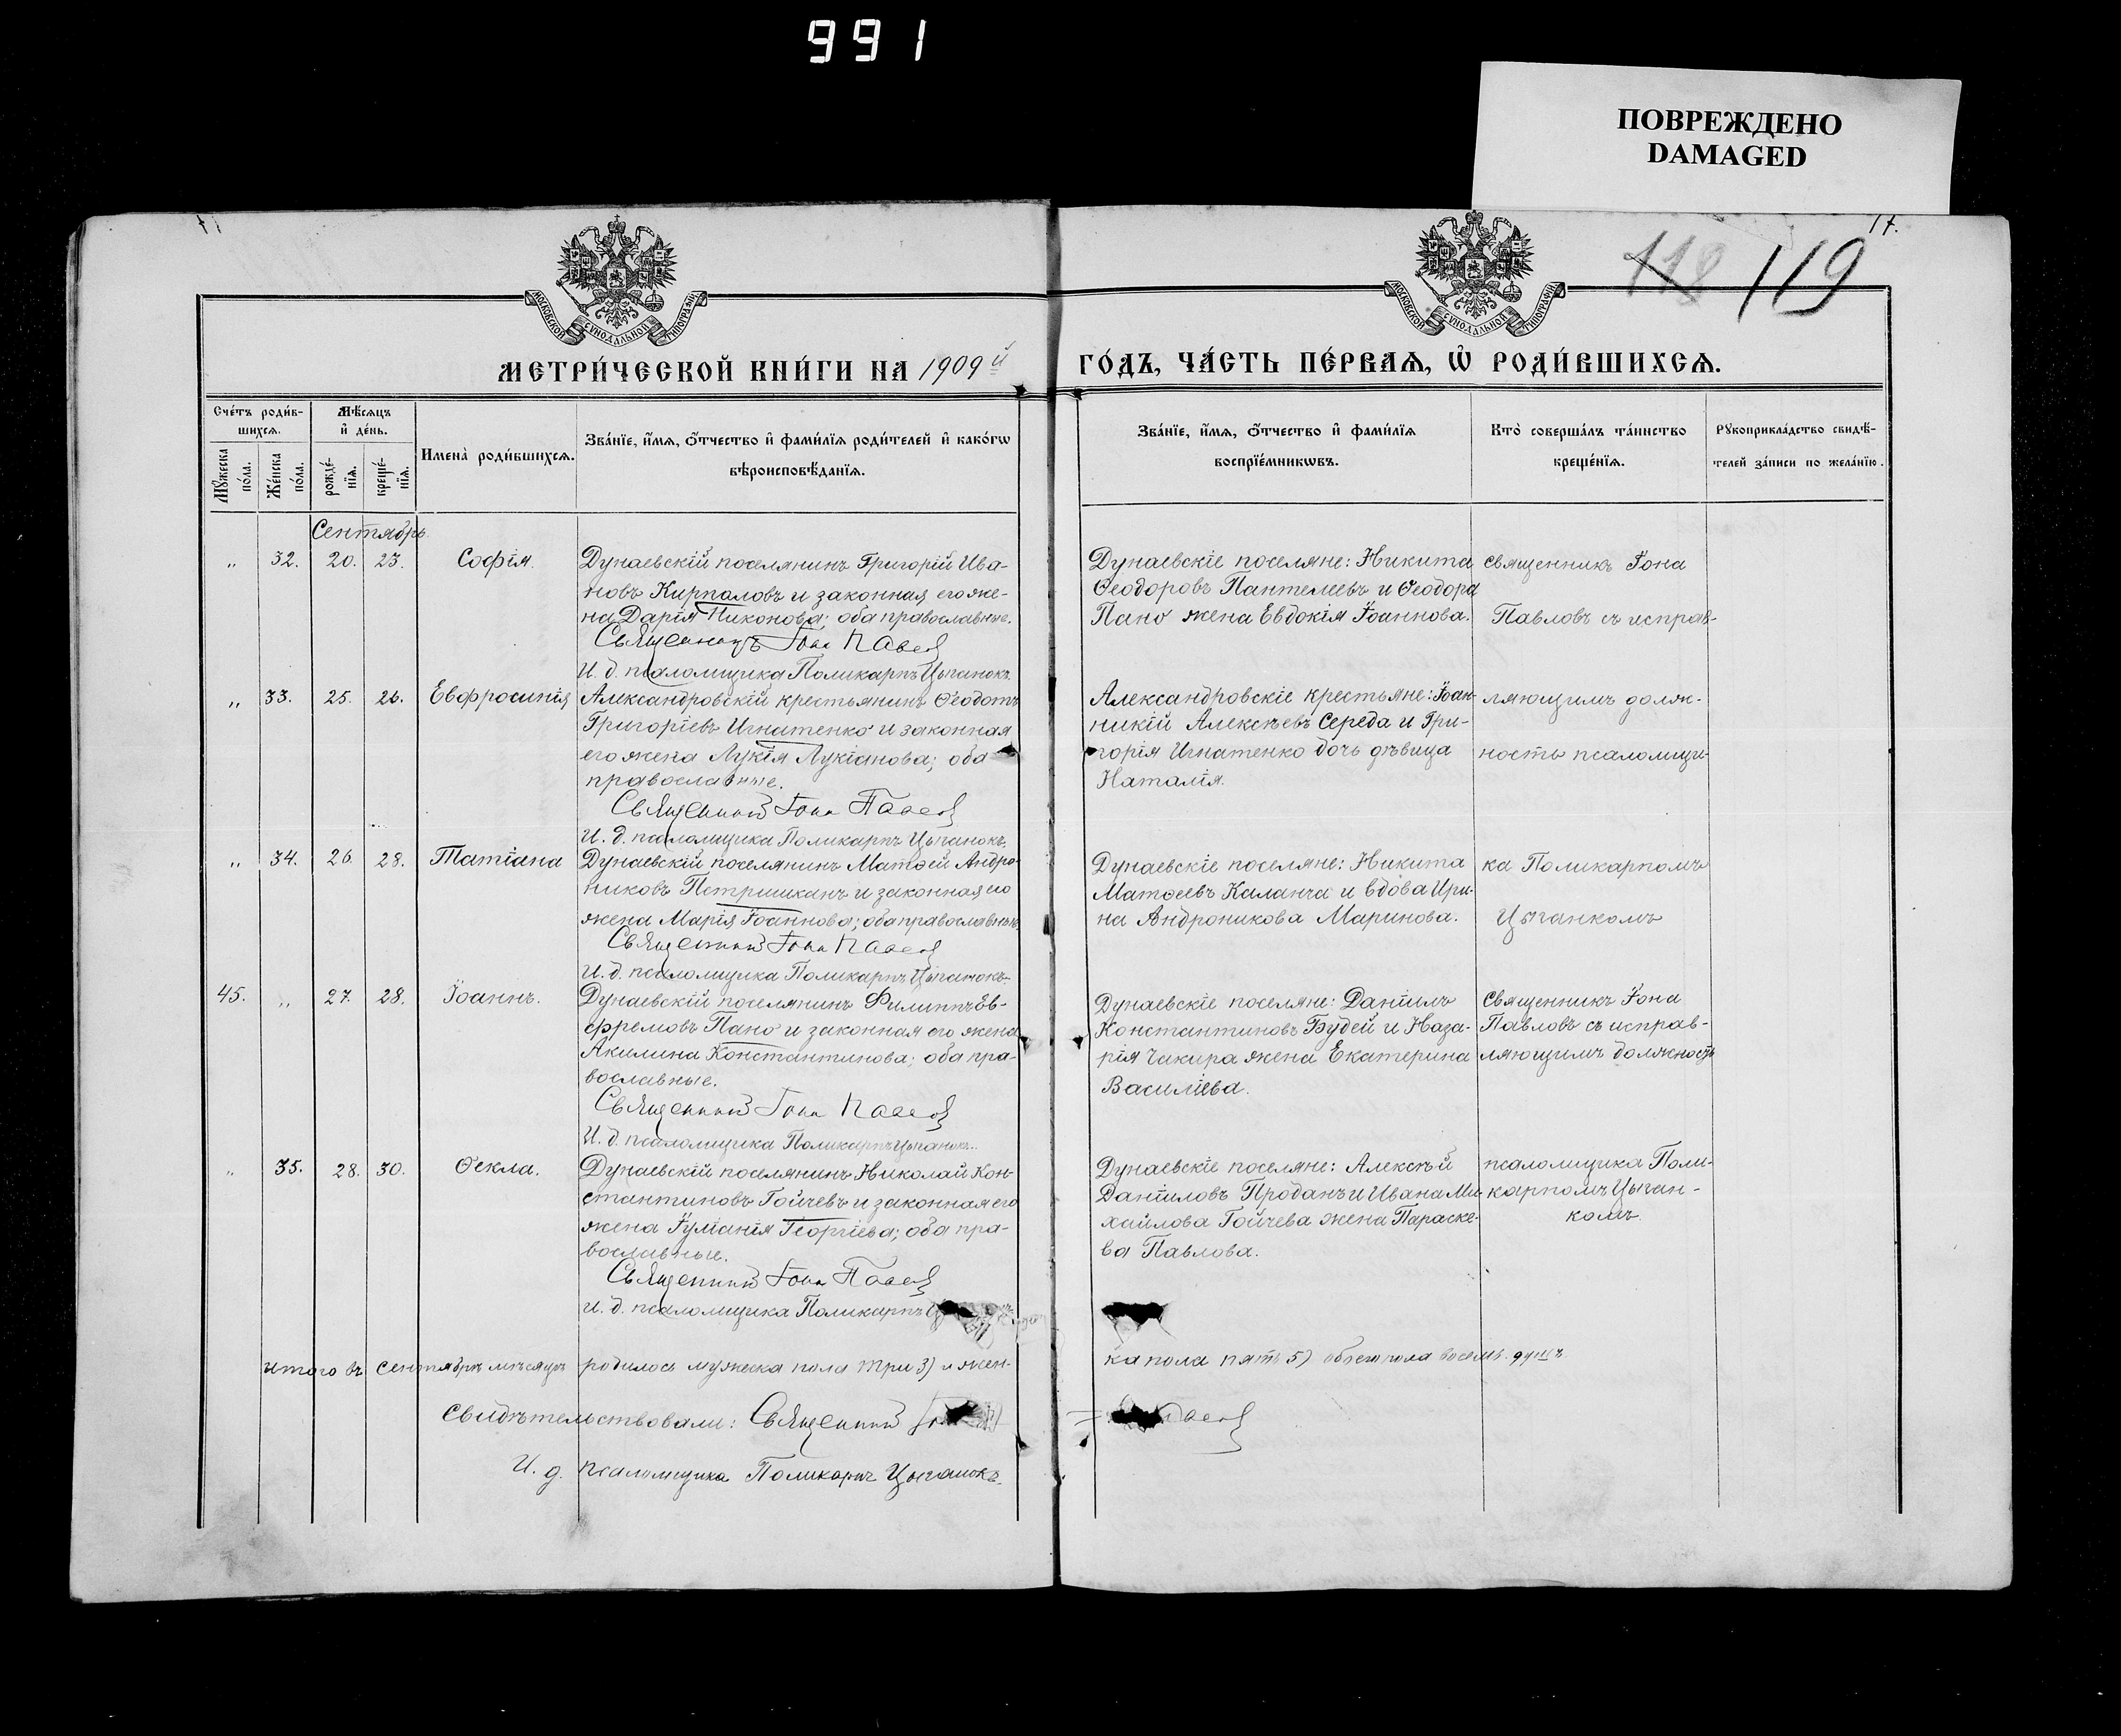 991
ПОВРЕЖДЕНО
DAMAGED
17.
118 119
МОСКОВСКОЙ СѴНОДАЛЬНОЙ ТИПОГРАФІИ
МОСКОВСКОЙ СѴНОДАЛЬНОЙ ТИПОГРАФІИ
МЕТРИ́ЧЕСКОЙ КНИ́ГИ НА 1909й
ГО́ДЪ, ЧА́СТЬ ПЕ́РВАѦ, Ѡ҆ РОДИ́ВШИХСѦ.
Сче́тъ роди́в-
шихсѧ.
Мѣ́сѧцъ
и҆ де́нь.
Мꙋ́жеска
по́ла.
Же́нска
по́ла.
рожде́-
нїѧ.
креще́-
нїѧ.
Имена̀ роди́вшихсѧ.
Зва́нїе, и҆́мѧ, ѻ҆́тчество и҆ фами́лїѧ роди́телей и҆ како́гѡ
вѣроисповѣ́данїѧ.
Зва́нїе, и҆́мѧ, ѻ҆́тчество и҆ фами́лїѧ
воспрїе́мникѡвъ.
Кто̀ соверша́лъ та́инство
креще́нїѧ.
Рꙋкоприкла́дство свидѣ́-
телей за́писи по жела́нїю.
Сентябрь
„ 32. 20. 23. Софія. Дунаевскій поселянинъ Григорій Ива-
новъ Кирпаловъ и законная его же-
на Дарія Никонова; оба православные.
Священникъ Іона Павлов
И. д. псаломщика Поликарпъ Цыганокъ.
Дунаевскіе поселяне: Никита
Ѳеодоровъ Пантелеевъ и Ѳеодора
Пано жена Евдокія Іоаннова.
священникъ Іона
Павловъ съ исправ-
„ 33. 25. 26. Евфросинія Александровскій крестьянинъ Ѳеодотъ
Григоріевъ Игнатенко и законная
его жена Лукія Лукіанова; оба
православные.
Священник Іона Павлов
И. д. псаломщика Поликарпъ Цыганокъ.
Александровскіе крестьяне: Іоан-
никій Алексѣевъ Середа и Гри-
горія Игнатенко дочь дѣвица
Наталія.
ляющимъ долж-
ность псаломщи-
„ 34. 26. 28. Татіана Дунаевскій поселянинъ Матѳей Андро-
никовъ Петришканъ и законная его
жена Марія Іоаннова; оба православные.
Священник Іона Павлов
И. д. псаломщика Поликарпъ Цыганокъ.
Дунаевскіе поселяне: Никита
Матѳеевъ Каланча и вдова Ири-
на Андроникова Маринова.
ка Поликарпомъ
Цыганкомъ
45. „ 27. 28. Іоаннъ. Дунаевскій поселянинъ Филиппъ Ев-
фремовъ Пано и законная его жена
Акилина Константинова; оба пра-
вославные.
Священник Іона Павлов
И. д. псаломщика Поликарпъ Цыганокъ.
Дунаевскіе поселяне: Даніилъ
Константиновъ Будей и Наза-
рія Чакира жена Екатерина
Василіева.
Священникъ Іона
Павловъ съ исправ-
ляющимъ должность
„ 35. 28. 30. Ѳекла. Дунаевскій поселянинъ Николай Кон-
стантиновъ Гойчевъ и законная его
жена Іуліанія Георгіева; оба пра-
вославные.
Священник Іона Павлов
И. д. псаломщика Поликарпъ
Дунаевскіе поселяне: Алексѣй
Даніиловъ Проданъ и Ивана Ми-
хаилова Гойчева жена Параске-
ва Павлова.
псаломщика Поли-
карпомъ Цыган-
комъ.
Итого въ Сентябрѣ мѣсяцѣ родилось мужеска пола три 3) и жен-
ка пола пять 5) обоего пола восемь душъ.
Свидѣтельствовали: Священник Іона Павлов
И. д. псаломщика Поликарпъ Цыганокъ.